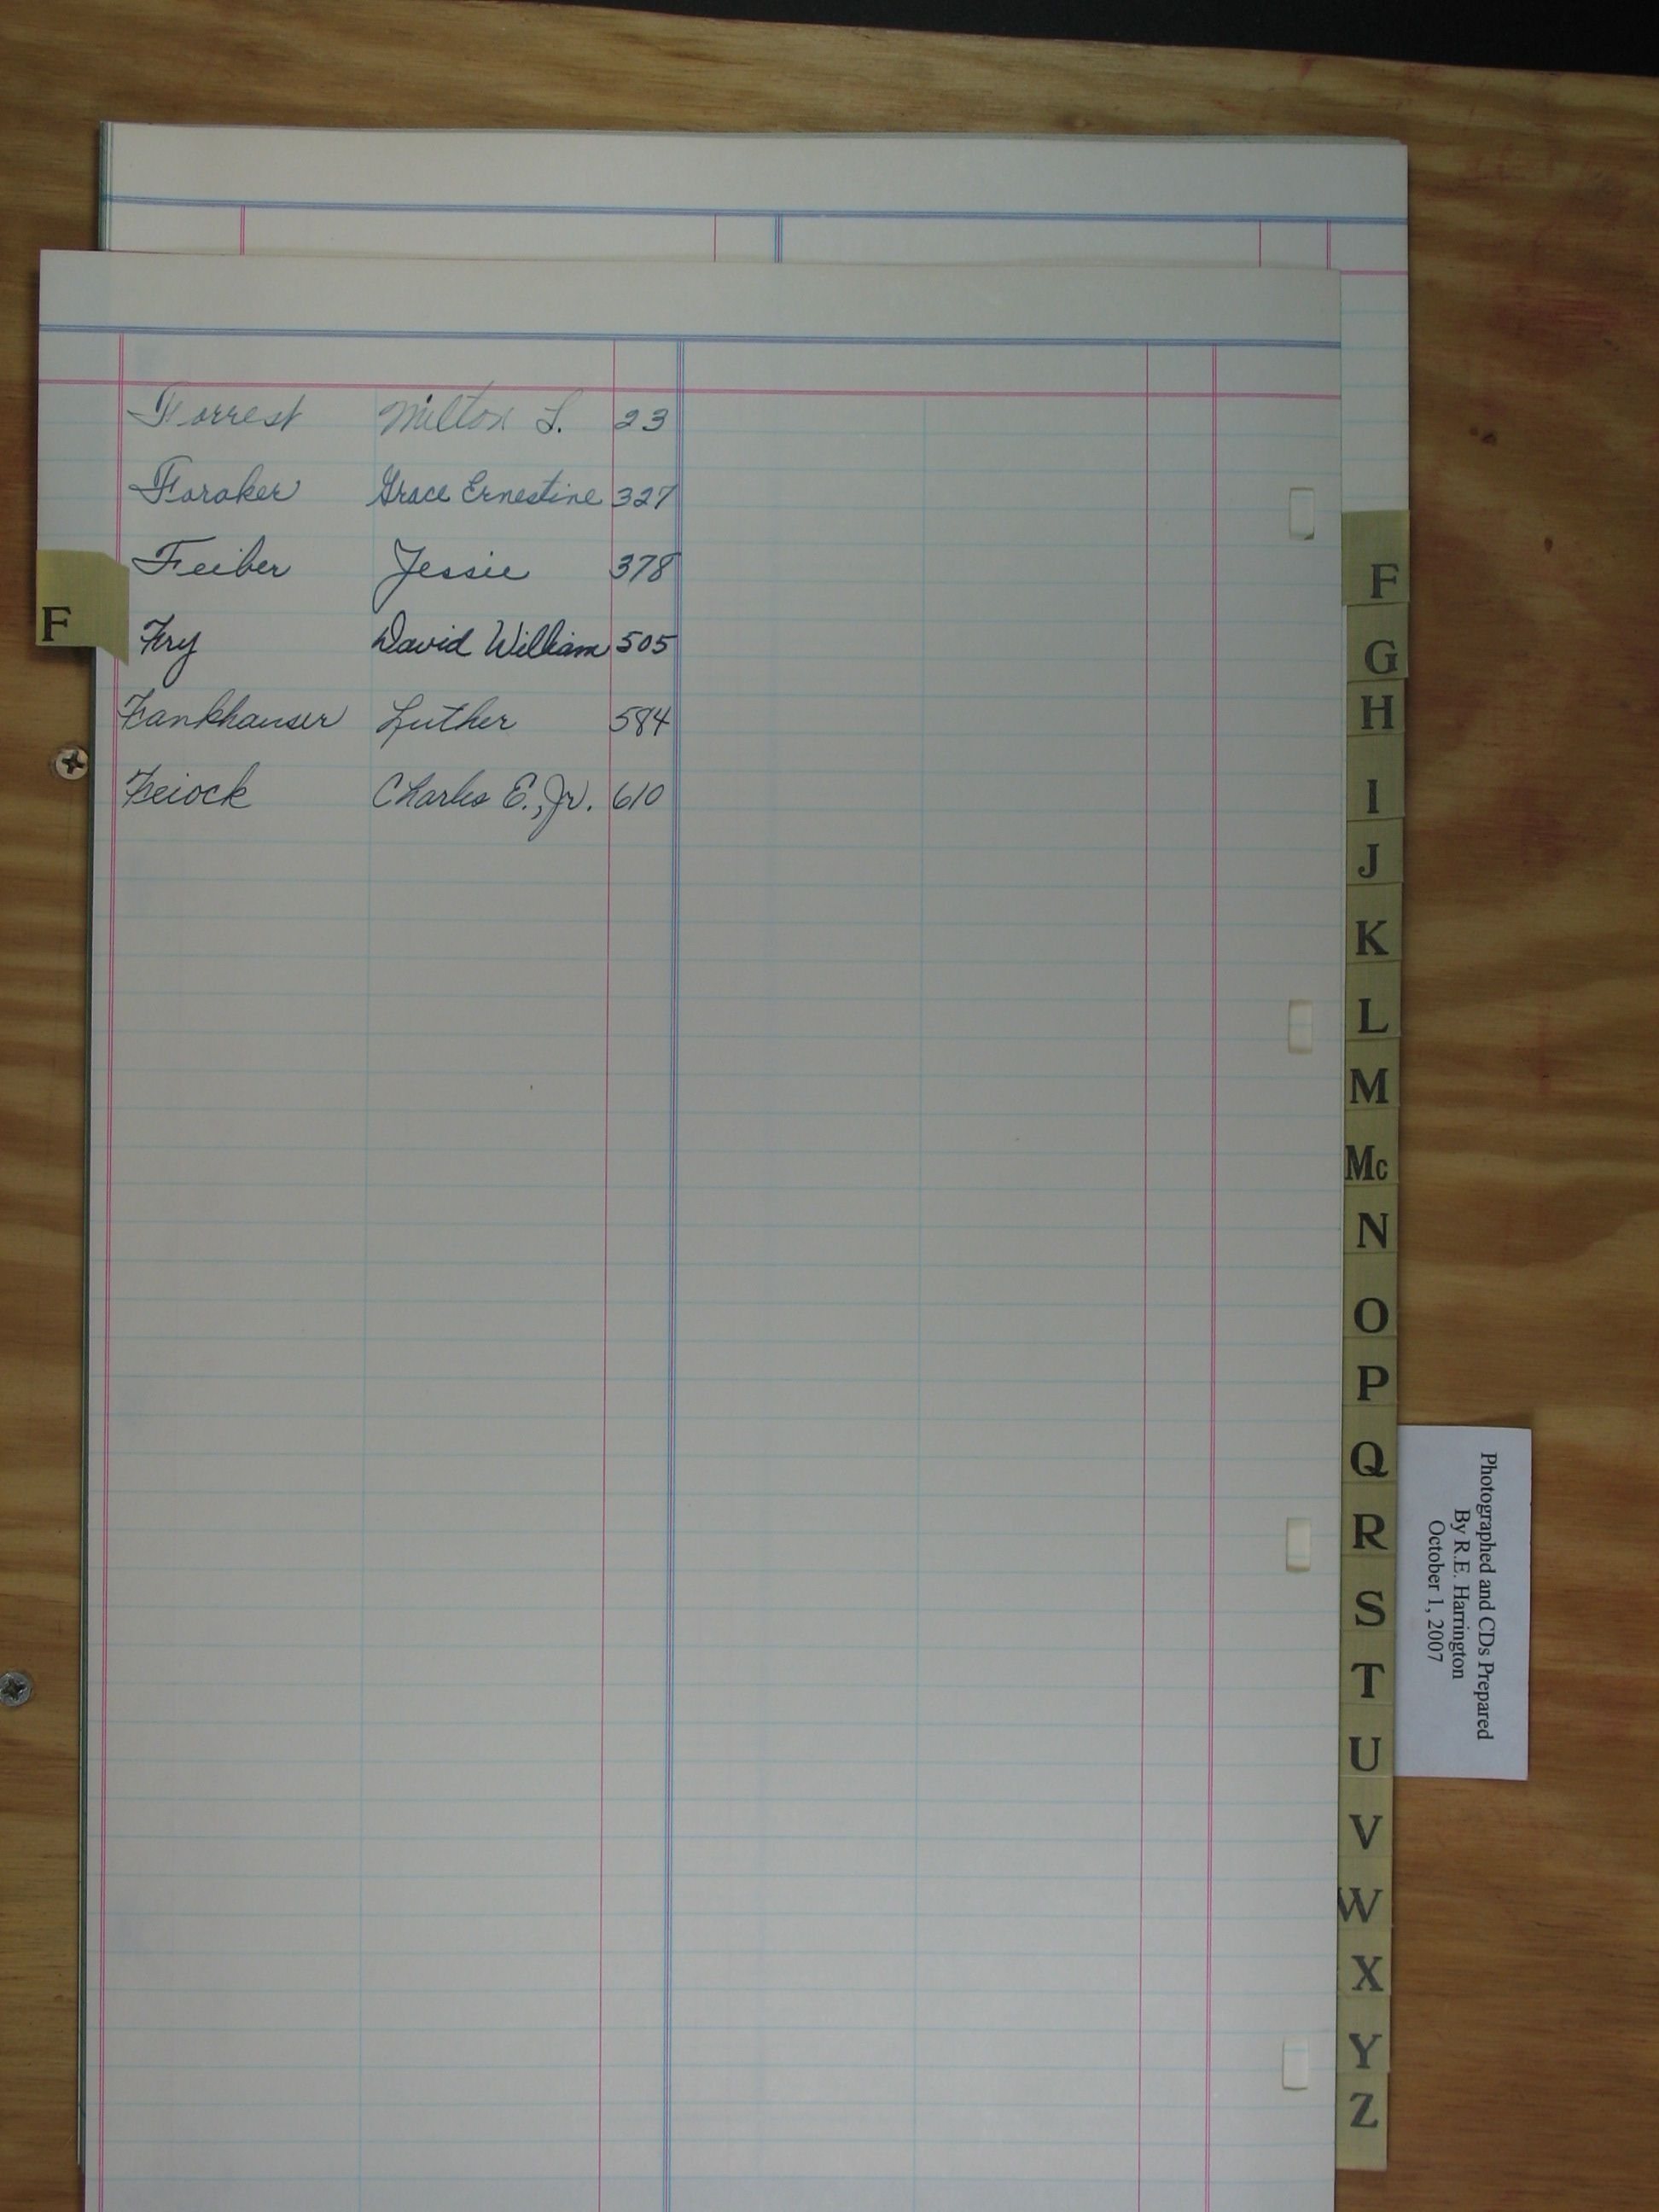 Forrest Milton L. 23
Foraker Grace Ernestine 327
Feiber Jessie 378
Fry David William 505
Fankhauser Luther 584
Feiock Charles E., Jr. 610
F
F
G
H
I
J
K
L
M
Mc
N
O
P
Q
R
S
T
U
V
W
X
Y
Z
Photographed and CDs Prepared
By R.E. Harrington
October 1, 2007